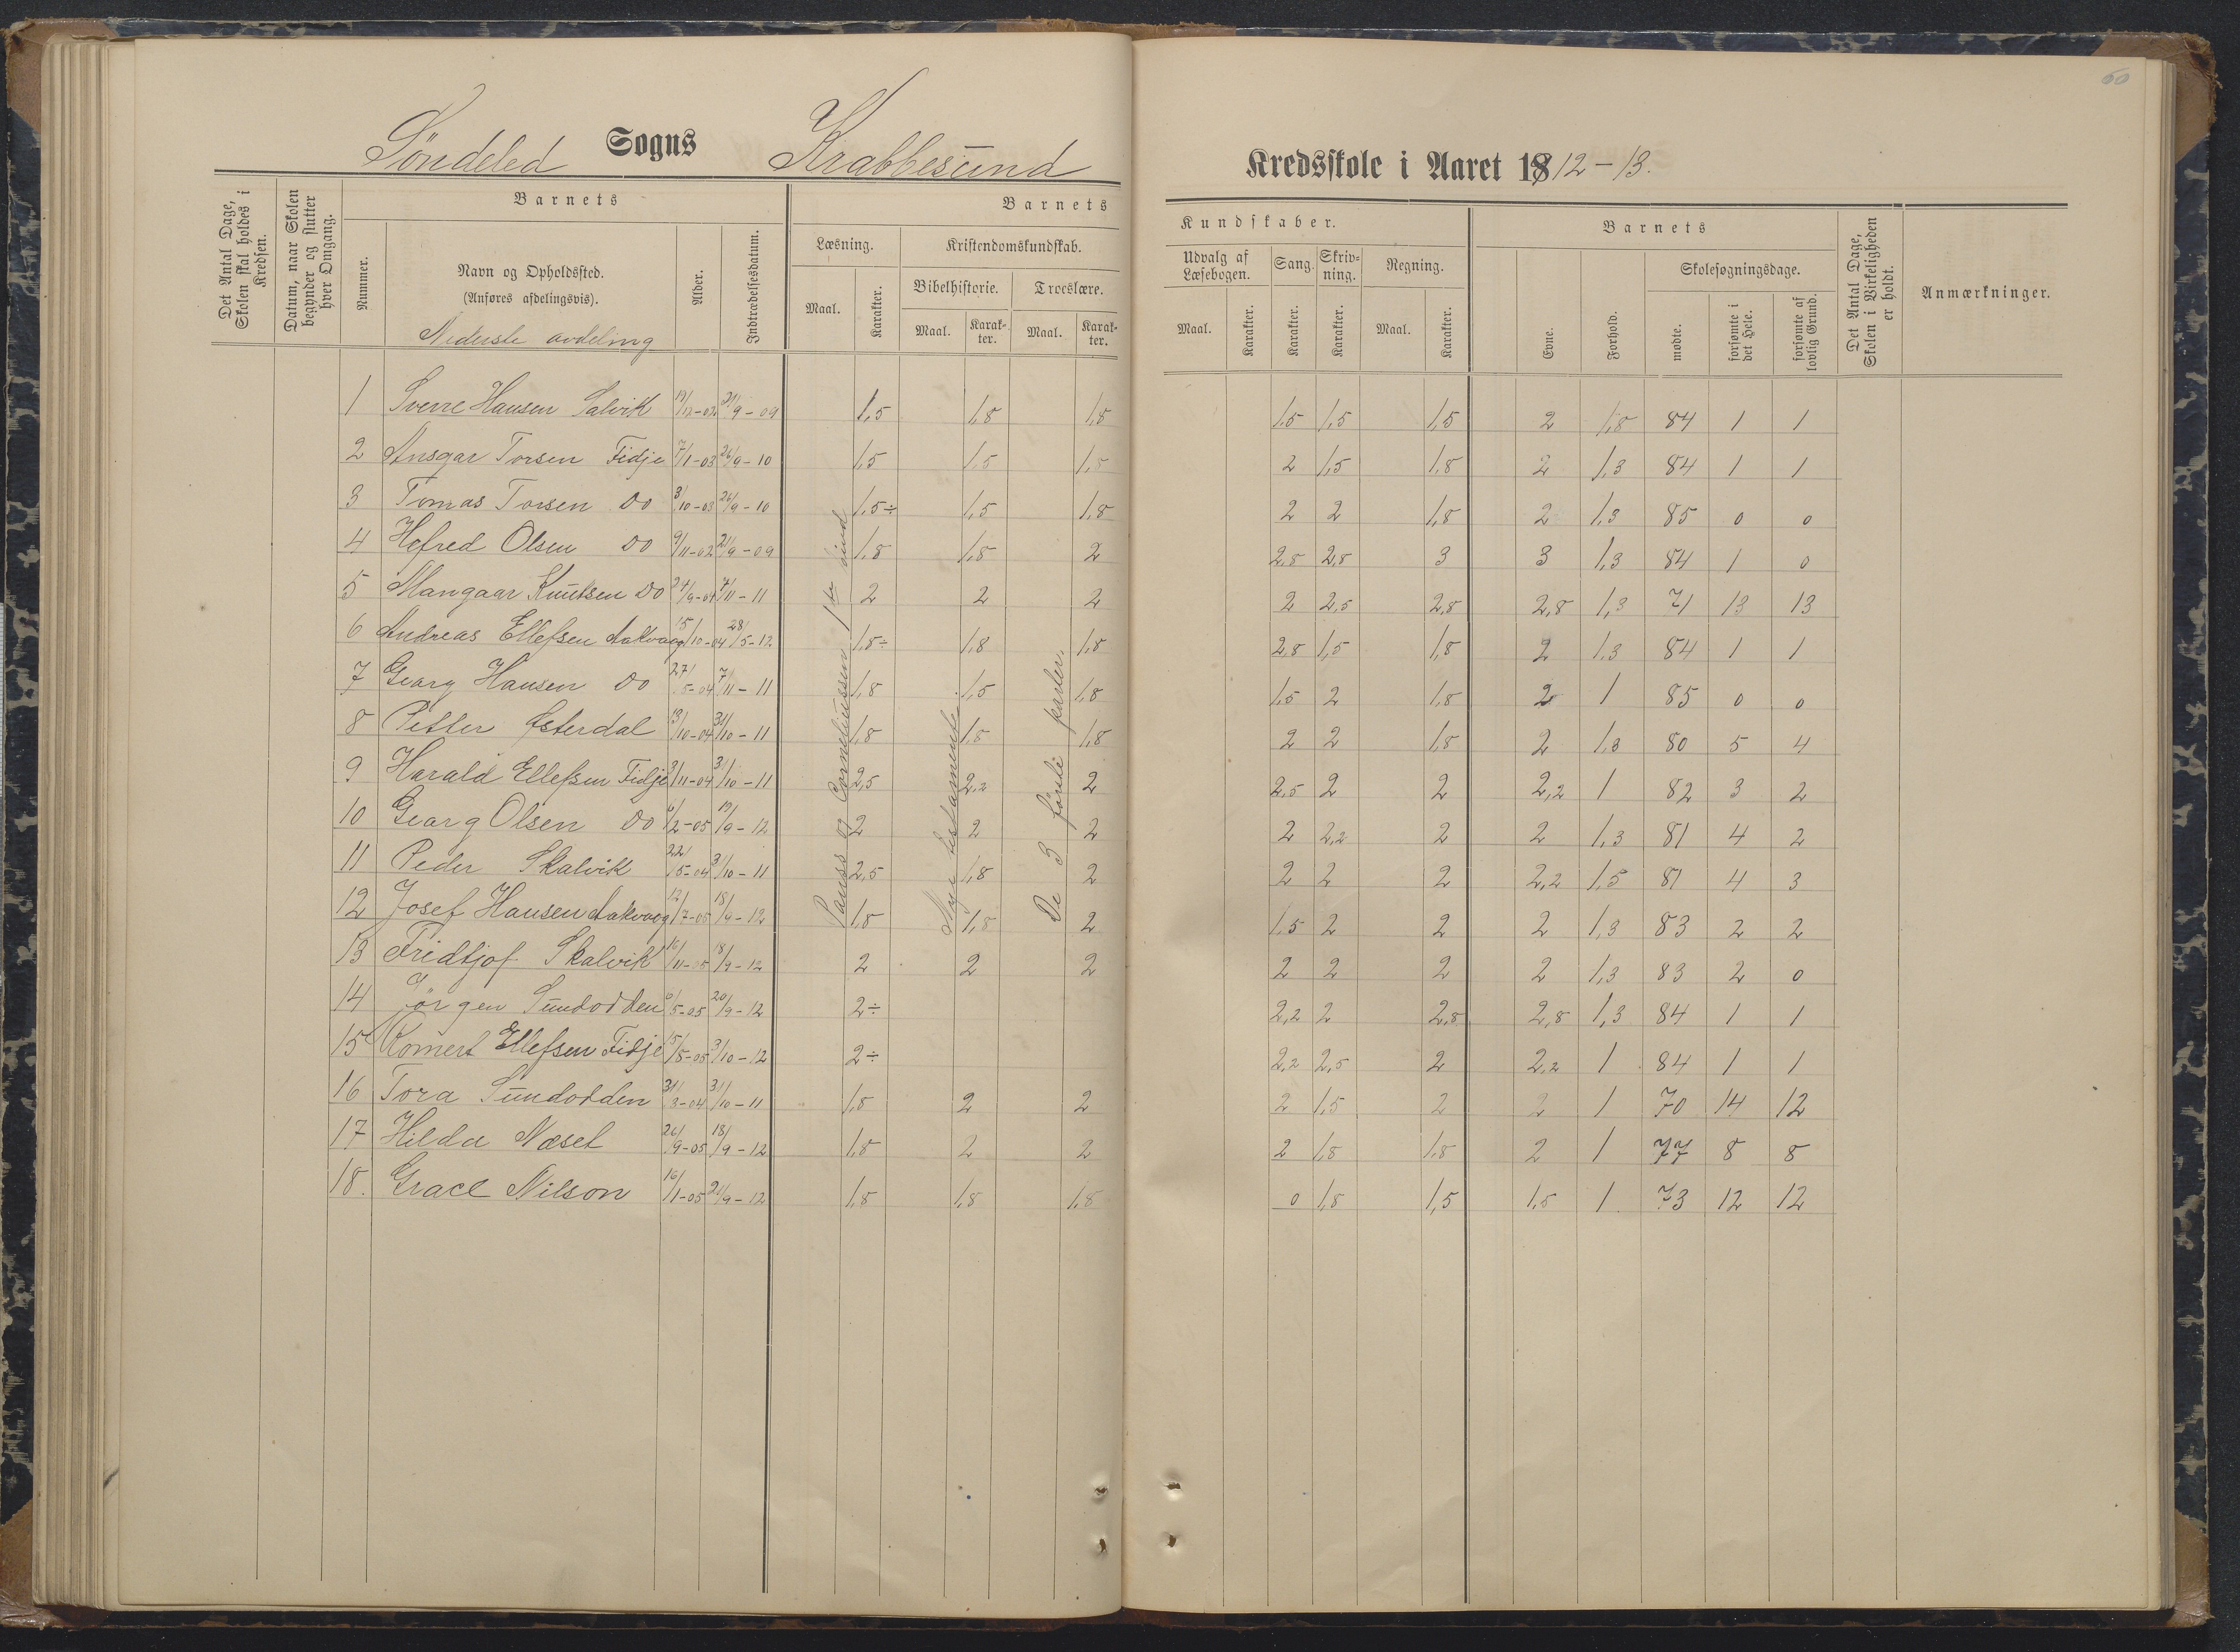 60
Söndeled Sogns Krabbesund Kredsskole i Aaret 1912-13.
Det Antal Dage, Skolen skal holdes i Kredsen.
Datum, naar Skolen begynder og slutter hver Omgang.
Barnets
Nummer.
Navn og Opholdssted.
(Anføres afdelingsvis).
Nederste avdeling
Alder.
Indtrædelsesdatum.
Barnets
Læsning.
Maal.
Karakter.
Kristendomskundskab.
Bibelhistorie.
Maal.
Karakter.
Troeslære.
Maal.
Karakter.
Kundskaber.
Udvalg af Læsebogen.
Maal.
Karakter.
Sang.
Karakter.
Skrivning.
Karakter.
Regning.
Maal.
Karakter.
Barnets
Evne.
Forhold.
Skolesøgningsdage.
mødte.
forsømte i det Hele.
forsømte af lovlig Grund.
Det Antal Dage, Skolen i Virkeligheden er holdt.
Anmærkninger.
1 Sverre Hansen Salvik 19/12-02 21/9-09 1,5 1,8 1,8 1,5 1,5 1,5 2 1,8 84 1 1
2 Ansgar Torsen Fidje 7/1-03 26/9-10 1,5 1,5 1,5 2 1,5 1,8 2 1,3 84 1 1
3 Tomas Torsen Do 3/10-03 26/9-10 1,5÷ 1,5 1,8 2 2 1,8 2 1,3 85 0 0
4 Hefred Olsen Do 9/11-02 21/9-09 1,8 1,8 2 2,8 2,8 3 3 1,3 84 1 0
5 Mangaar Knutsen Do 24/9-04 7/11-11 2 2 2 2 2,5 2,8 2,8 1,3 71 13 13
6 Andreas Ellefsen Aakvaag 15/10-04 28/5-12 1,8÷ 1,8 1,8 2,8 1,5 1,8 2 1,3 84 1 1
7 Georg Hansen Do 27/5-04 7/11-11 1,8 1,5 1,8 1,5 2 1,8 2 1 85 0 0
8 Petter Østerdal 13/10-04 31/10-11 1,8 1,8 1,8 2 2 1,8 2 1,3 80 5 4
9 Harald Ellefsen Fidje 3/11-04 31/10-11 2,5 2,2 2 2,5 2 2 2,2 1 82 3 2
10 Georg Olsen Do 6/2-05 19/9-12 2 2 2 2 2,2 2 2 1,3 81 4 2
11 Peder Skalvik 22/5-04 3/10-11 2,5 1,8 2 2 2 2 2,2 1,5 81 4 3
12 Josef Hansen Aakvaag 12/7-05 18/9-12 1,8 1,8 2 1,5 2 2 2 1,3 83 2 2
13 Fridtjof Skalvik 16/11-05 18/9-12 2 2 2 2 2 2 2 1,3 83 2 0
14 Jörgen Sundodden 6/5-05 20/9-12 2÷ 2,2 2 2,8 2,8 1,3 84 1 1
15 Komert Ellefsen Fidje 15/5-05 3/10-12 2÷ 2,2 2,5 2 2,2 1 84 1 1
16 Tora Sundodden 31/3-04 31/10-11 1,8 2 2 2 1,5 2 2 1 70 14 12
17 Hilda Næset 26/9-05 18/9-12 1,8 2 2 2 1,8 1,8 2 1 77 8 8
18. Grace Nilson 16/1-05 21/9-12 1,8 1,8 1,8 0 1,8 1,5 1,5 1 73 12 12
Pauss og Corneliussen 1ste bind
Nye testamente
De 3 förste parter.